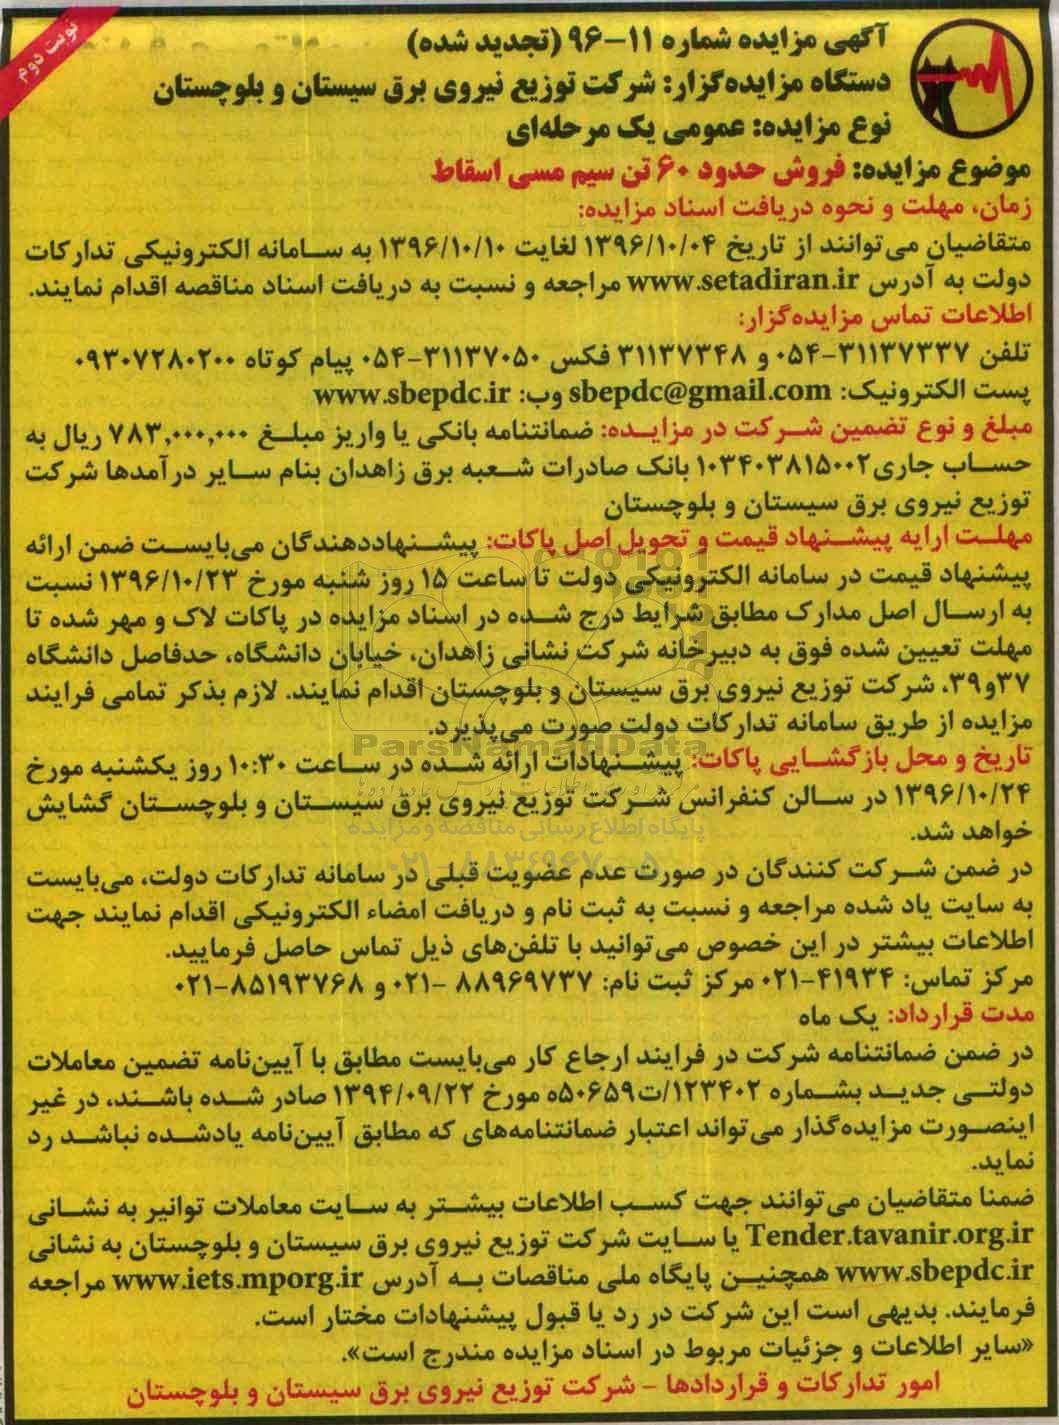 نوبت دوم
آگهی مزایده شماره ۱۱-۹۶ (تجدید شده)
دستگاه مزایده‌گزار: شرکت توزیع نیروی برق سیستان و بلوچستان
نوع مزایده: عمومی یک مرحله‌ای
موضوع مزایده: فروش حدود ۶۰ تن سیم مسی اسقاط
زمان، مهلت و نحوه دریافت اسناد مزایده:
متقاضیان می‌توانند از تاریخ ۱۳۹۶/۱۰/۰۴ لغایت ۱۳۹۶/۱۰/۱۰ به سامانه الکترونیکی تدارکات
دولت به آدرس www.setadiran.ir مراجعه و نسبت به دریافت اسناد مناقصه اقدام نمایند.
اطلاعات تماس مزایده‌گزار:
تلفن ۳۱۱۳۷۳۳۷-۰۵۴ و ۳۱۱۳۷۳۴۸ فکس ۳۱۱۳۷۰۵۰-۰۵۴ پیام کوتاه ۰۹۳۰۷۲۸۰۲۰۰
پست الکترونیک: sbepdc@gmail.com وب: www.sbepdc.ir
مبلغ و نوع تضمین شرکت در مزایده: ضمانتنامه بانکی یا واریز مبلغ ۷۸۳,۰۰۰,۰۰۰ ریال به
حساب جاری ۱۰۳۴۰۳۸۱۵۰۰۲ بانک صادرات شعبه برق زاهدان بنام سایر درآمدها شرکت
توزیع نیروی برق سیستان و بلوچستان
مهلت ارایه پیشنهاد قیمت و تحویل اصل پاکات: پیشنهاددهندگان می‌بایست ضمن ارائه
پیشنهاد قیمت در سامانه الکترونیکی دولت تا ساعت ۱۵ روز شنبه مورخ ۱۳۹۶/۱۰/۲۳ نسبت
به ارسال اصل مدارک مطابق شرایط درج شده در اسناد مزایده در پاکات لاک و مهر شده تا
مهلت تعیین شده فوق به دبیرخانه شرکت نشانی زاهدان، خیابان دانشگاه، حدفاصل دانشگاه
۳۷و۳۹، شرکت توزیع نیروی برق سیستان و بلوچستان اقدام نمایند. لازم بذکر تمامی فرایند
مزایده از طریق سامانه تدارکات دولت صورت می‌پذیرد.
ParsNamadData
تاریخ و محل بازگشایی پاکات: پیشنهادات ارائه شده در ساعت ۱۰:۳۰ روز یکشنبه مورخ
۱۳۹۶/۱۰/۲۴ در سالن کنفرانس شرکت توزیع نیروی برق سیستان و بلوچستان گشایش
پایگاه اطلاع رسانی مناقصه و مزایده
خواهد شد.
۰۲۱-۸۸۳۴۹۶۷۰-۵
در ضمن شرکت کنندگان در صورت عدم عضویت قبلی در سامانه تدارکات دولت، می‌بایست
به سایت یاد شده مراجعه و نسبت به ثبت نام و دریافت امضاء الکترونیکی اقدام نمایند جهت
اطلاعات بیشتر در این خصوص می‌توانید با تلفن‌های ذیل تماس حاصل فرمایید.
مرکز تماس: ۴۱۹۳۴-۰۲۱ مرکز ثبت نام: ۸۸۹۶۹۷۳۷ -۰۲۱ و ۸۵۱۹۳۷۶۸-۰۲۱
مدت قرارداد: یک ماه
در ضمن ضمانتنامه شرکت در فرایند ارجاع کار می‌بایست مطابق با آیین‌نامه تضمین معاملات
دولتی جدید بشماره ۱۲۳۴۰۲/ت۵۰۶۵۹ه مورخ ۱۳۹۴/۰۹/۲۲ صادر شده باشند، در غیر
اینصورت مزایده‌گذار می‌تواند اعتبار ضمانتنامه‌های که مطابق آیین‌نامه یادشده نباشد رد
نماید.
ضمنا متقاضیان می‌توانند جهت کسب اطلاعات بیشتر به سایت معاملات توانیر به نشانی
Tender.tavanir.org.ir یا سایت شرکت توزیع نیروی برق سیستان و بلوچستان به نشانی
www.sbepdc.ir همچنین پایگاه ملی مناقصات به آدرس www.iets.mporg.ir مراجعه
فرمایند. بدیهی است این شرکت در رد یا قبول پیشنهادات مختار است.
«سایر اطلاعات و جزئیات مربوط در اسناد مزایده مندرج است».
امور تدارکات و قراردادها - شرکت توزیع نیروی برق سیستان و بلوچستان